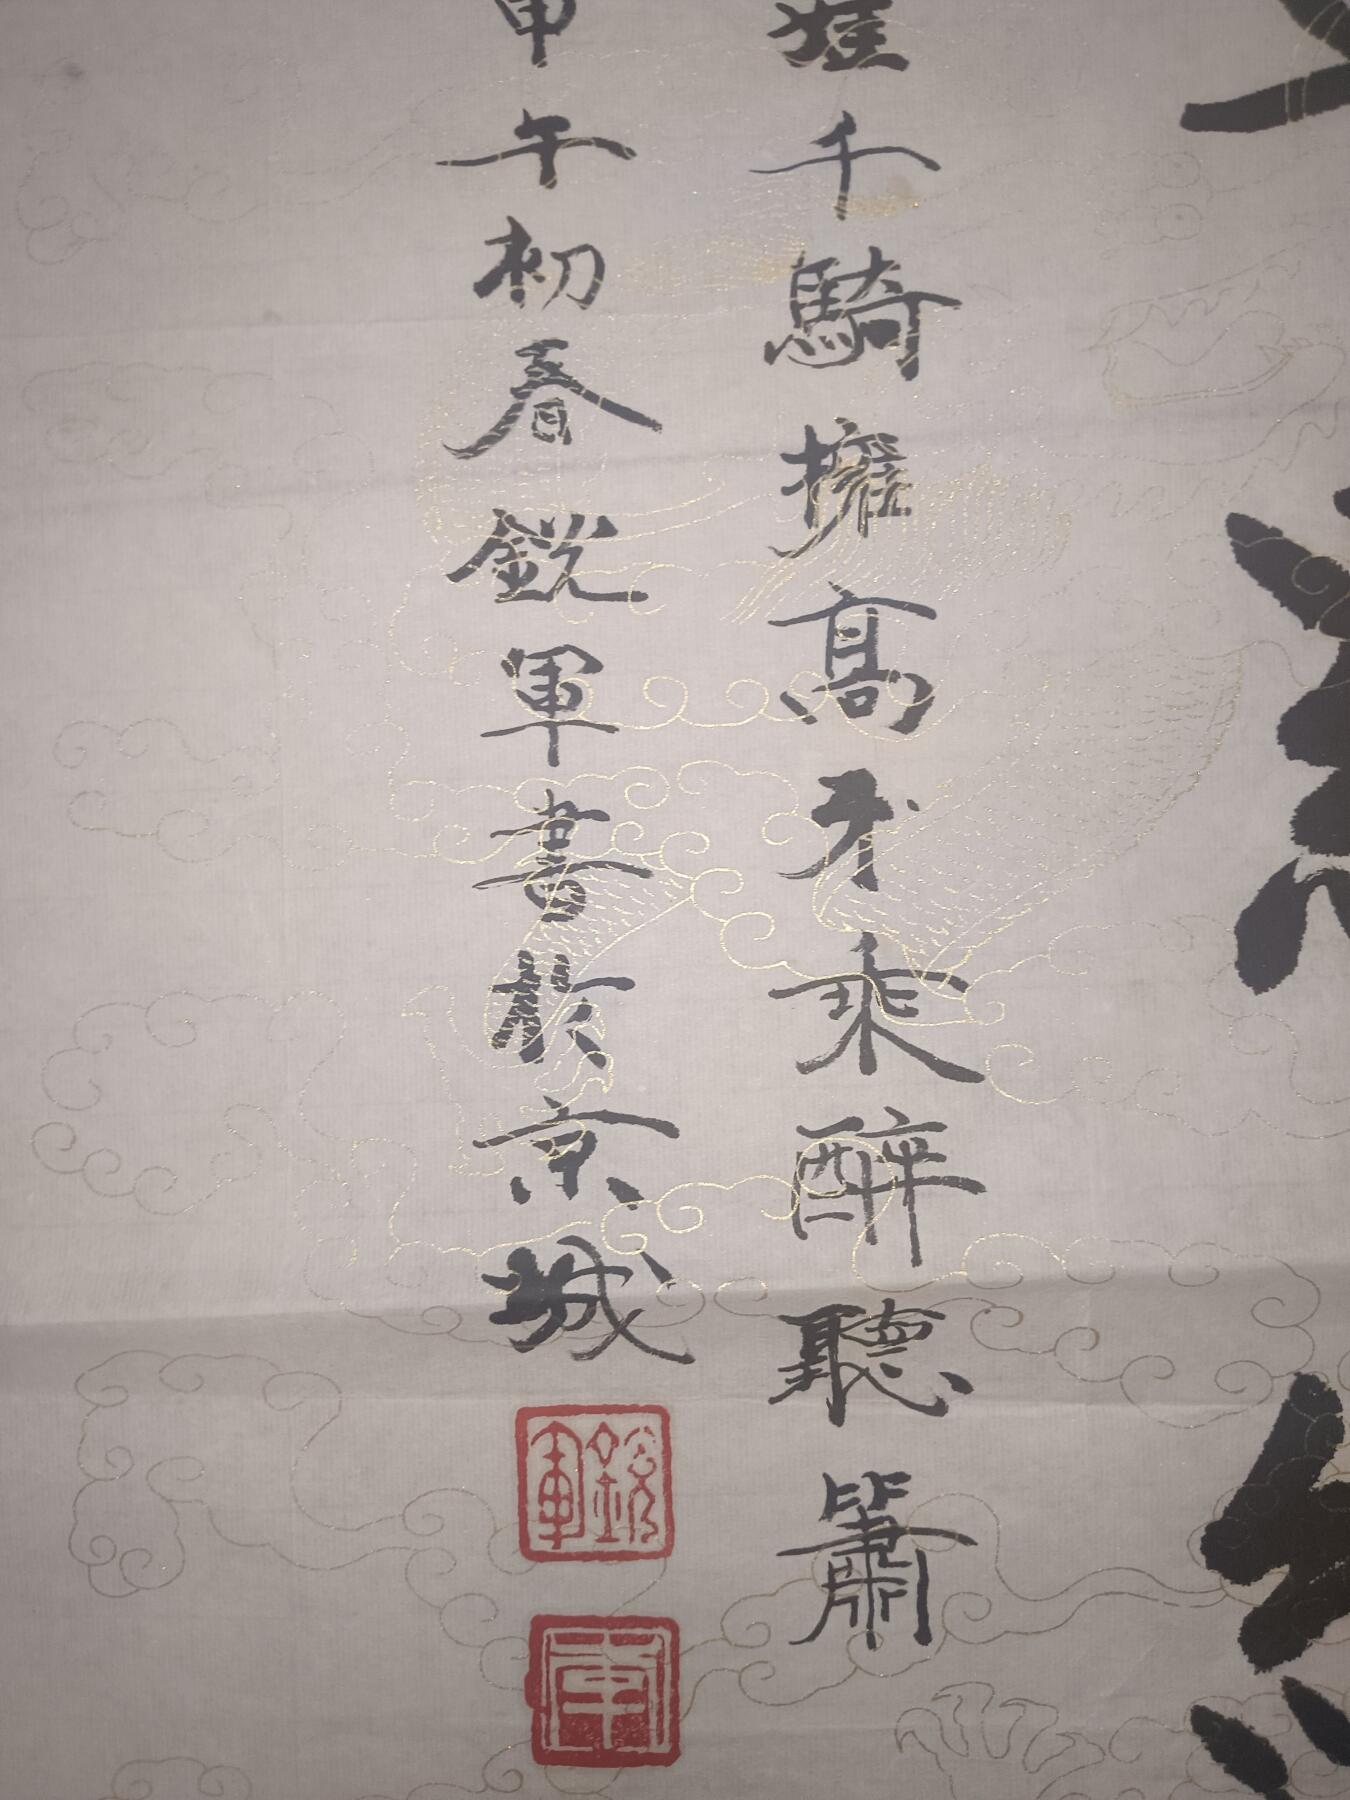 娃千騎擁高牙乘醉聽簫
甲午初春銳軍書於京城
銳軍